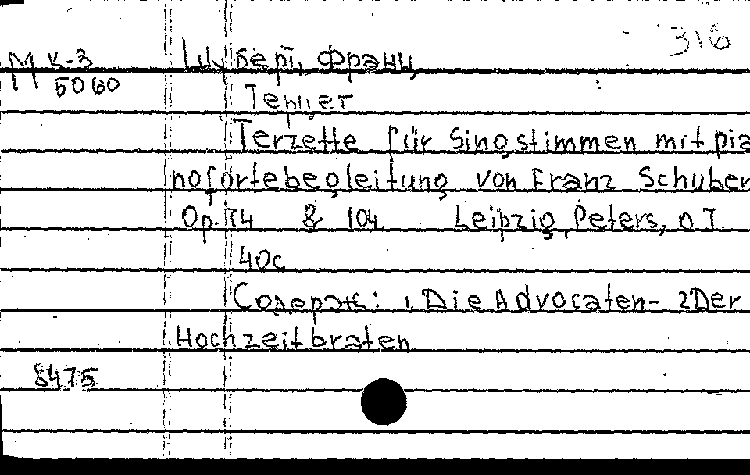 316
М к-3 Шуберт, Франц
5060
Терцет
Terzette für Singstimmen mit pia
nofortebegleitung von Franz Schuber
Op. 74 & 104 Leipzig, Peters, o. J.
40с
Содерж: 1 Die Advocaten - 2 Der
Hochzeitbraten
8475